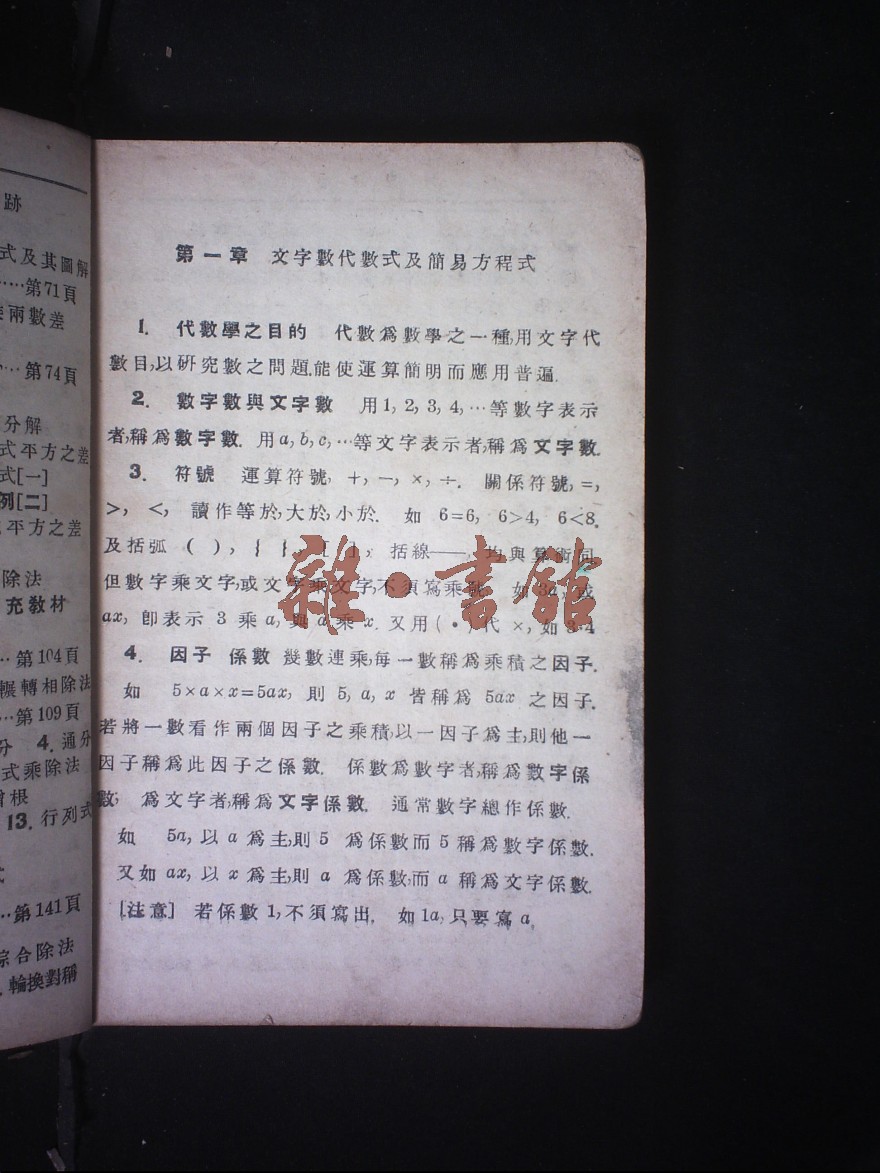 跡
式及其圖解
……第71頁
兩數差
…第74頁
分解
式平方之差
式[一]
例[二]
平方之差
除法
充敎材
…第104頁
輾轉相除法
…第109頁
分 4. 通分
式乘除法
根
13. 行列式
式
…第141頁
綜合除法
輪換對稱
第一章 文字數代數式及簡易方程式
1. 代數學之目的 代數爲數學之一種,用文字代
數目,以研究數之問題.能使運算簡明而應用普遍.
2. 數字數與文字數 用1, 2, 3, 4, …等數字表示
者,稱爲數字數. 用a, b, c, …等文字表示者,稱爲文字數.
3. 符號 運算符號, +, −, ×, ÷. 關係符號, =,
>, <, 讀作等於,大於,小於. 如 6=6, 6>4, 6<8.
及括弧 ( ), { }, [ ], 括線——, 均與算術同
但數字乘文字,或文字乘文字,不須寫乘號. 如 3a, 或
ax, 卽表示 3 乘 a, 與 a 乘 x. 又用 (·) 代 ×, 如 3·4
4. 因子 係數 幾數連乘,每一數稱爲乘積之因子.
如 5×a×x=5ax, 則 5, a, x 皆稱爲 5ax 之因子.
若將一數看作兩個因子之乘積,以一因子爲主,則他一
因子稱爲此因子之係數. 係數爲數字者,稱爲數字係
數; 爲文字者,稱爲文字係數. 通常數字總作係數.
如 5a, 以 a 爲主,則 5 爲係數而 5 稱爲數字係數.
又如 ax, 以 x 爲主,則 a 爲係數,而 a 稱爲文字係數.
[注意] 若係數 1, 不須寫出. 如 1a, 只要寫 a.
雜·書館